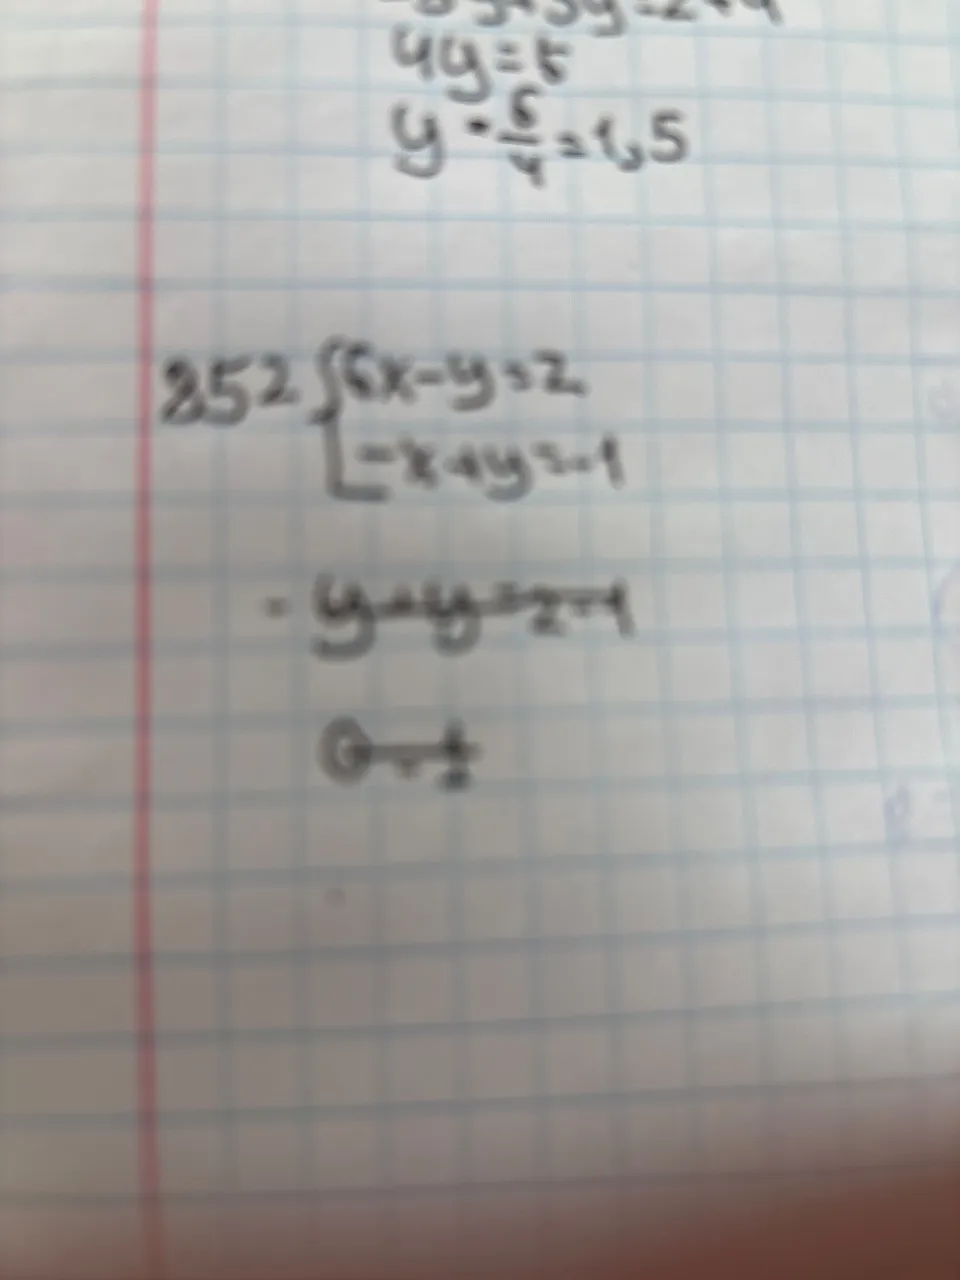 4y=6
y=6/4=1,5
852 {6x-y=2
-x+y=-1
- y+y=2-1